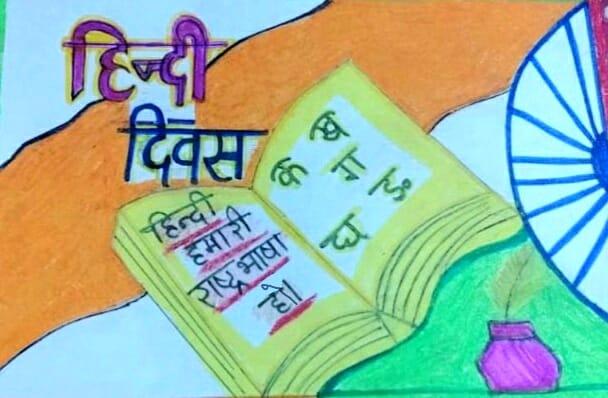 हिन्दी
दिवस
हिन्दी
हमारी
राष्ट्रभाषा
हो।
क ख
ग
घ ङ